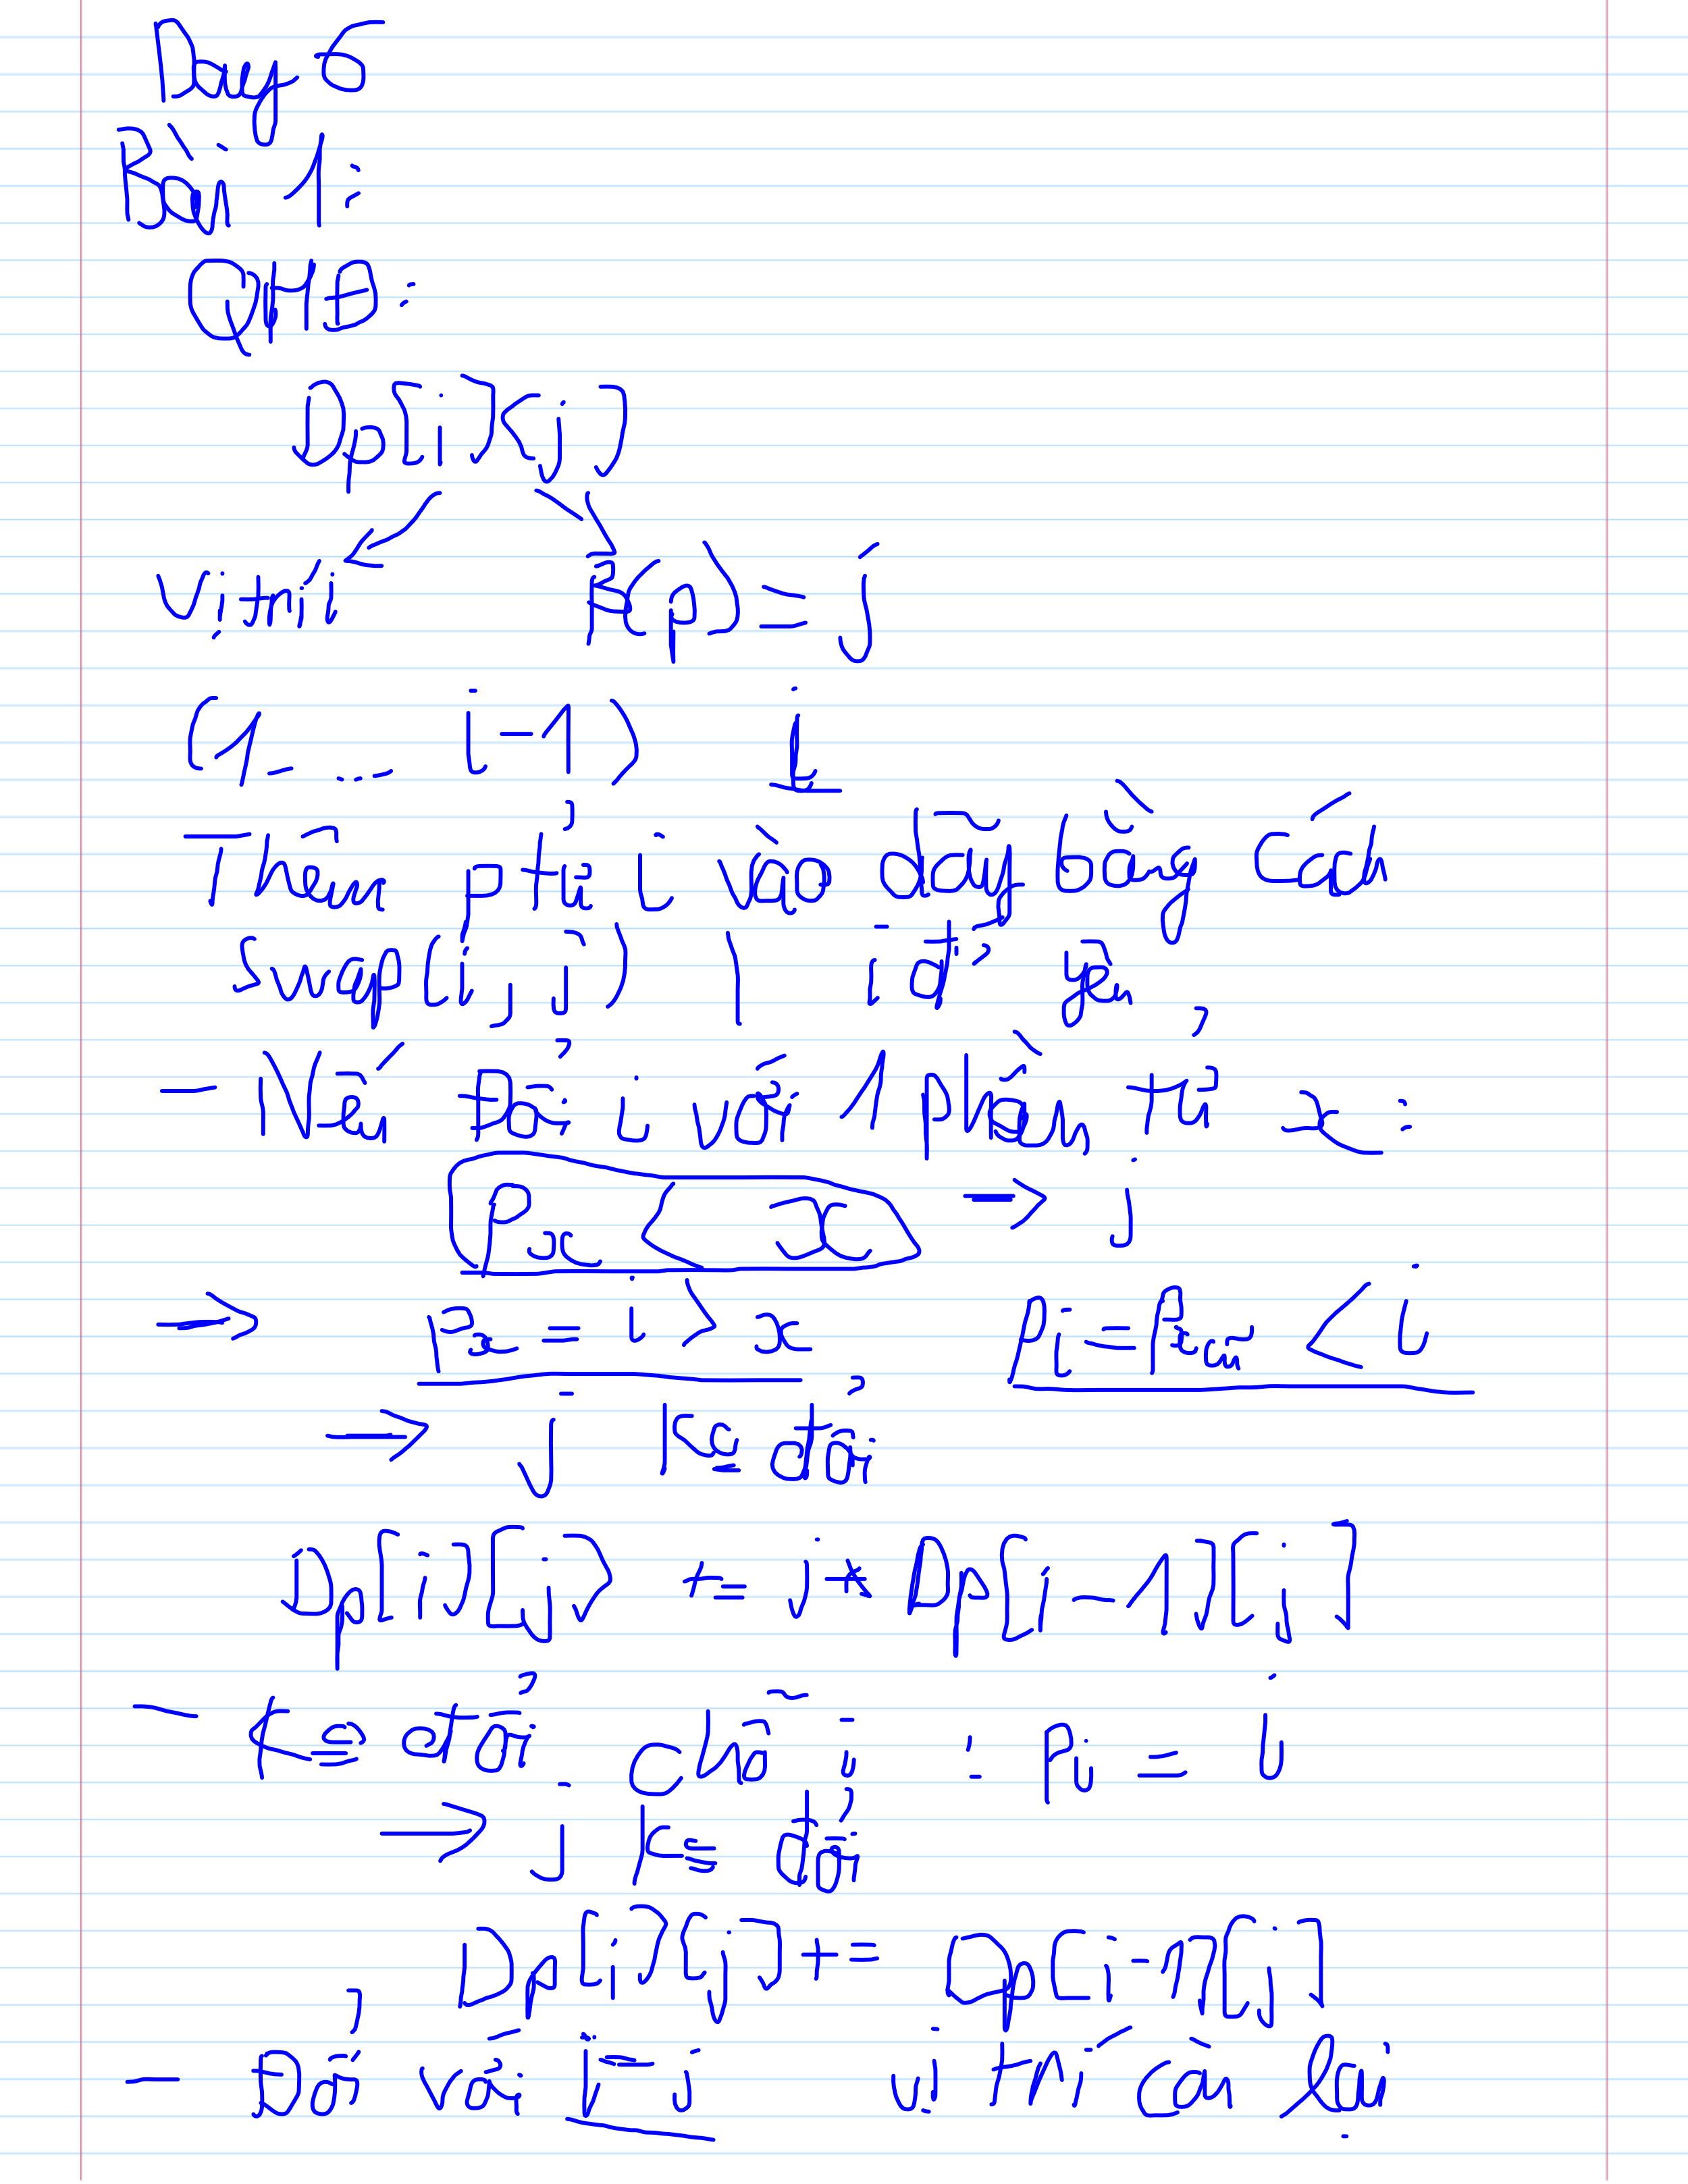 Day 6
Bài 1:
QHĐ:
Dp[i][j]
Vị trí i k(p) = j
(1 ... i-1) i
- Thêm p tử i vào dãy bằng cách
Swap(i, j) |
- Nếu Đổi i với 1 phần tử x:
Px < x → j
⇒ Px = i > x Pi = Px cũ < i
→ j K đổi
Dp[i][j] += j * Dp[i-1][j]
- K đổi chỗ i : Pi = i
→ j K đổi
Dp[i][j] += Dp[i-1][j]
- Đổi với i - j vị trí còn lại